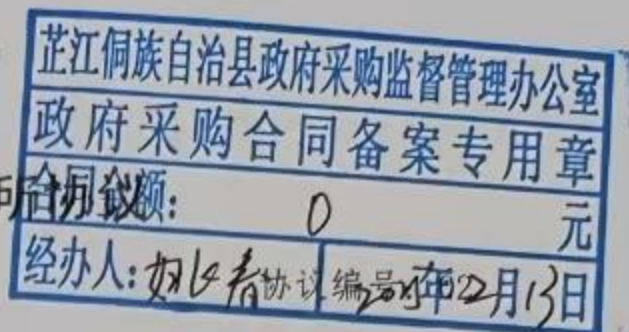 芷江侗族自治县政府采购监督管理办公室
政府采购合同备案专用章
合同金额: 0 元
协议
经办人: 协议编号 年 月13日